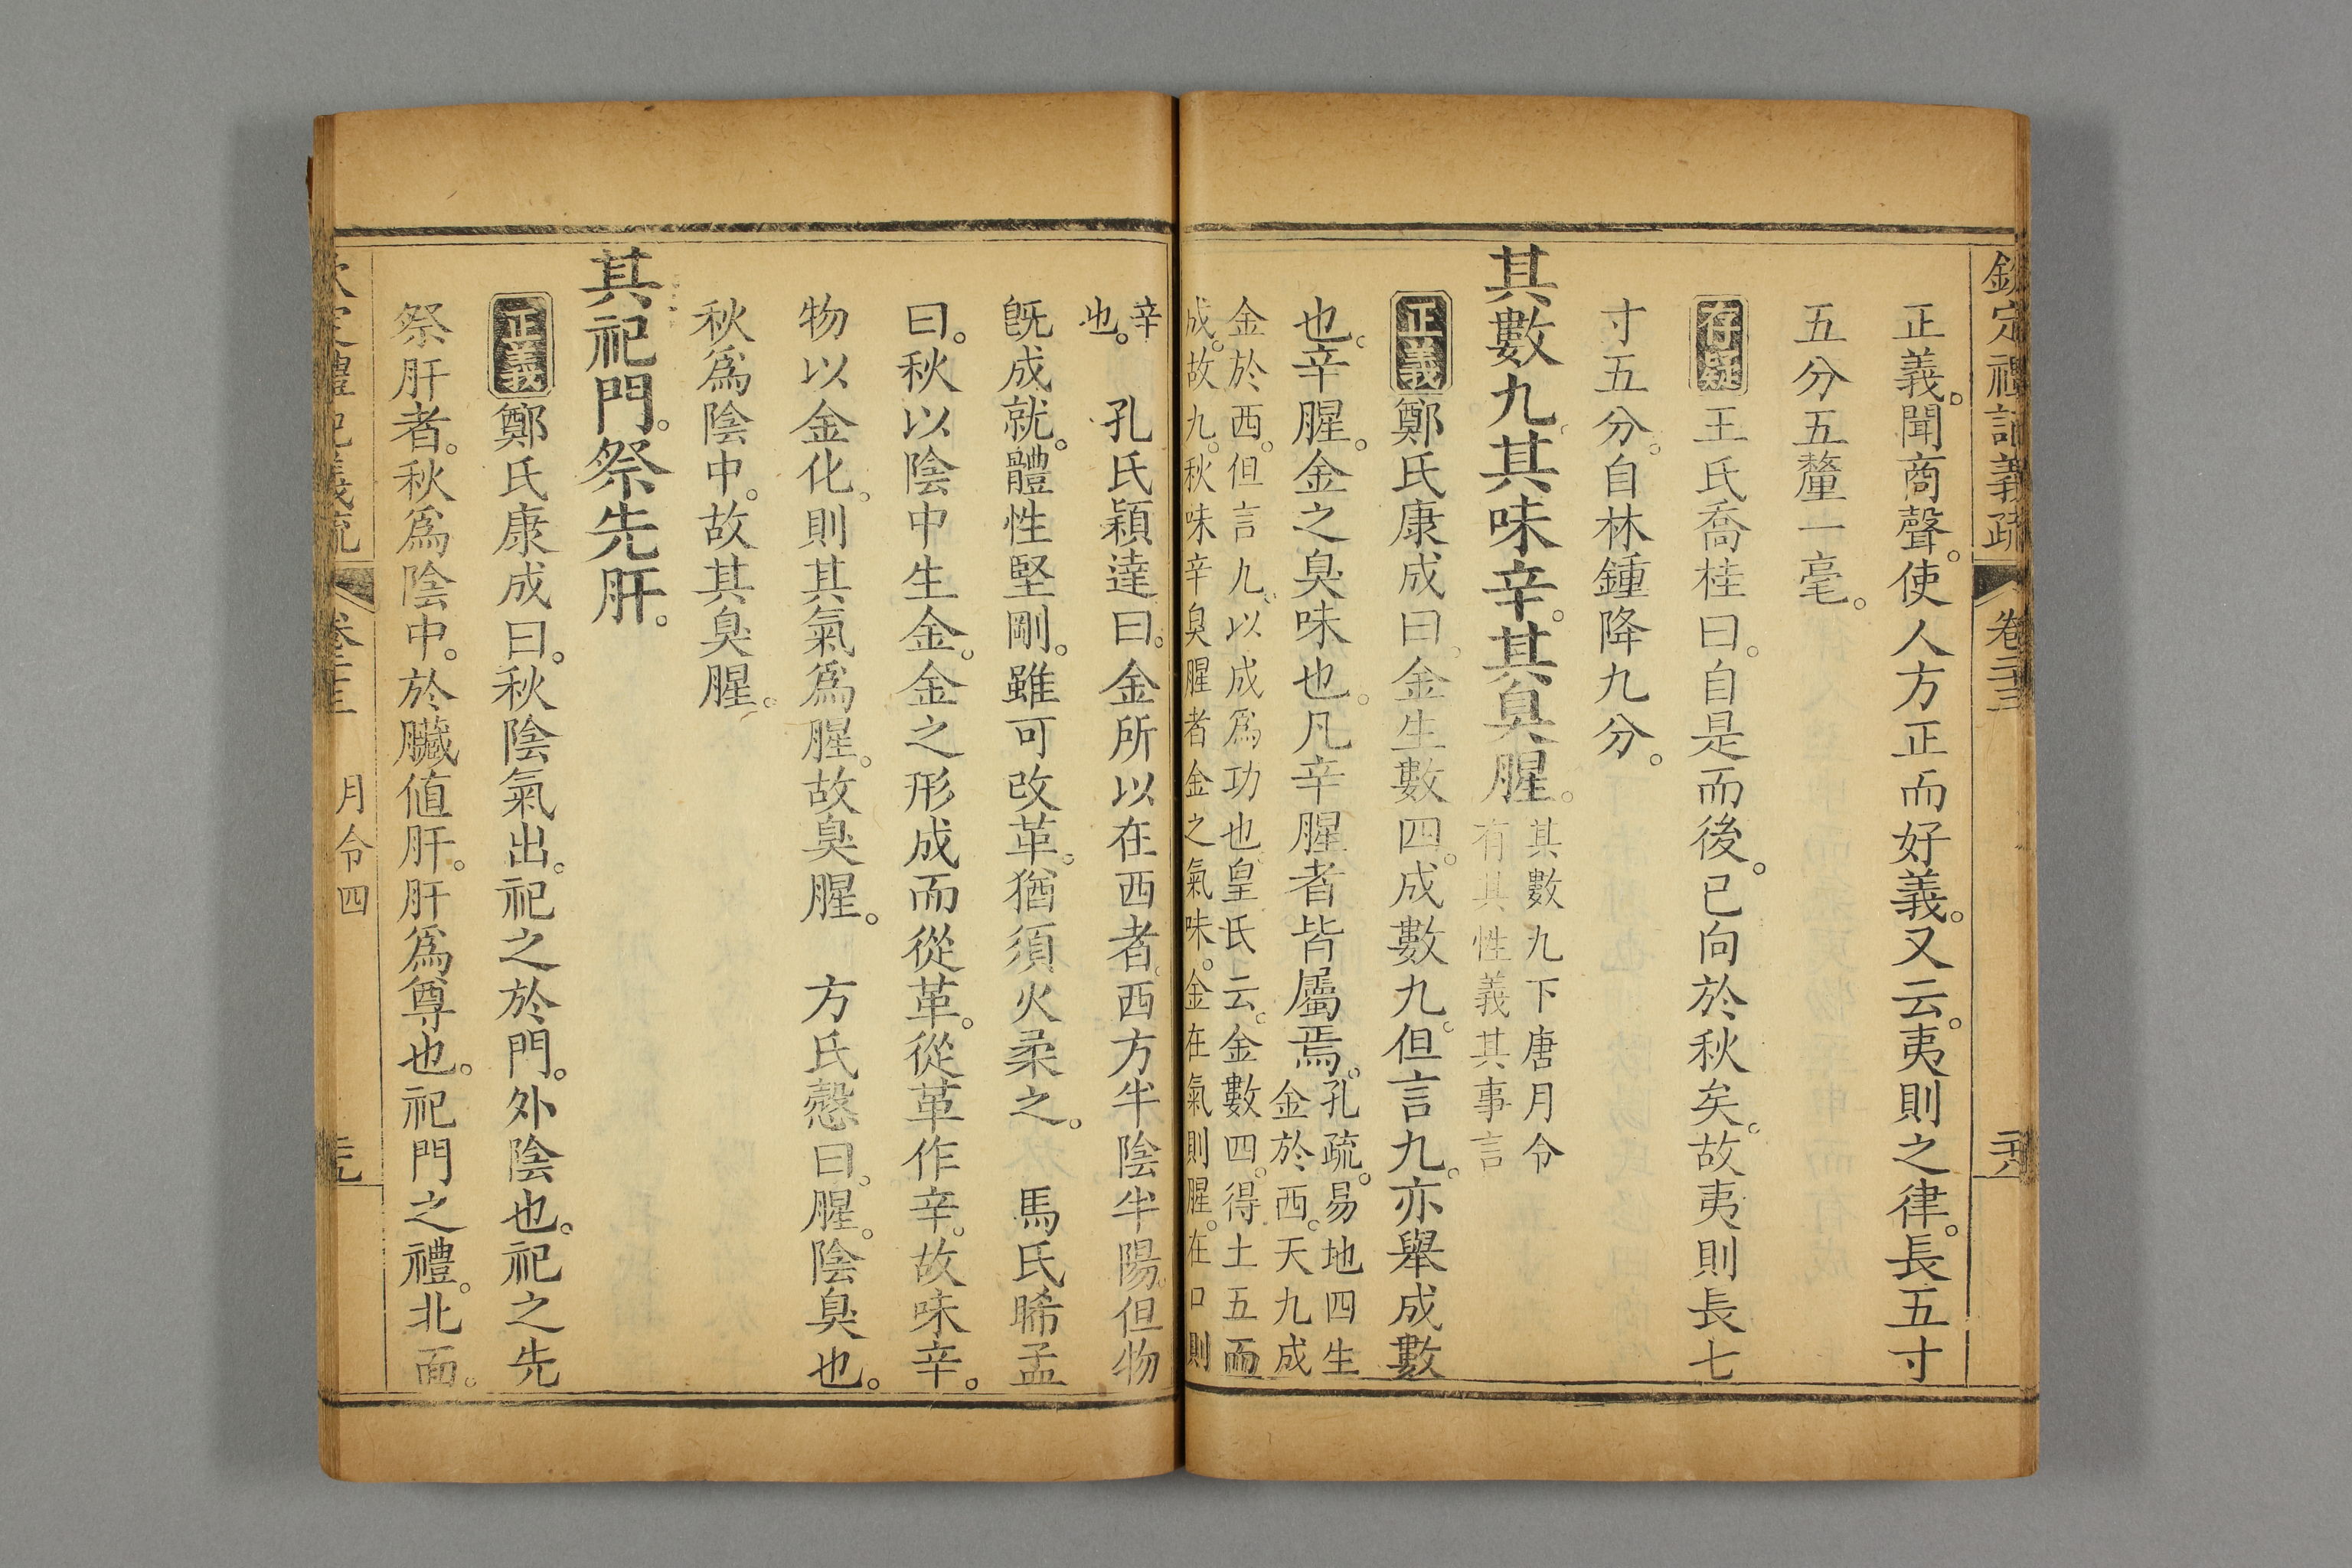 欽定禮記義疏 卷二十三 二十八
正義。聞商聲。使人方正而好義。又云。夷則之律。長五寸
五分五釐一毫。
存疑 王氏喬桂曰。自是而後。已向於秋矣。故夷則長七
寸五分。自林鍾降九分。
其數九。其味辛。其臭腥。
其數九下唐月令
有其性義其事言
正義 鄭氏康成曰。金生數四。成數九。但言九。亦舉成數
也。辛腥。金之臭味也。凡辛腥者皆屬焉。
孔疏。易地四生
金於西。天九成
金於西。但言九。以成爲功也。皇氏云。金數四。得土五而
成。故九。秋味辛臭腥者金之氣味。金在氣則腥。在口則
辛
也。
孔氏穎達曰。金所以在西者。西方半陰半陽。但物
旣成就。體性堅剛。雖可改革。猶須火柔之。 馬氏晞孟
曰。秋以陰中生金。金之形成而從革。從革作辛。故味辛。
物以金化。則其氣爲腥。故臭腥。 方氏慤曰。腥。陰臭也。
秋爲陰中。故其臭腥。
其祀門。祭先肝。
正義 鄭氏康成曰。秋陰氣出。祀之於門。外陰也。祀之先
祭肝者。秋爲陰中。於臟値肝。肝爲尊也。祀門之禮。北面。
欽定禮記義疏 卷二十三 月令四 二十九